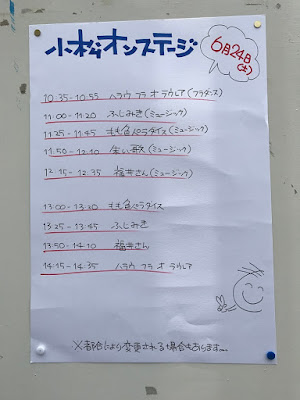 小松オンステージ
6月24日
(土)
10:35-10:55 ハラウ フラ オ ラウレア(フラダンス)
11:00-11:20 ふじみき(ミュージック)
11:25-11:45 もも色パラダイス(ミュージック)
11:50-12:10 生い歌(ミュージック)
12:15-12:35 福井さん(ミュージック)
13:00-13:20 もも色パラダイス
13:25-13:45 ふじみき
13:50-14:10 福井さん
14:15-14:35 ハラウ フラ オ ラウレア
※都合により変更される場合もあります…